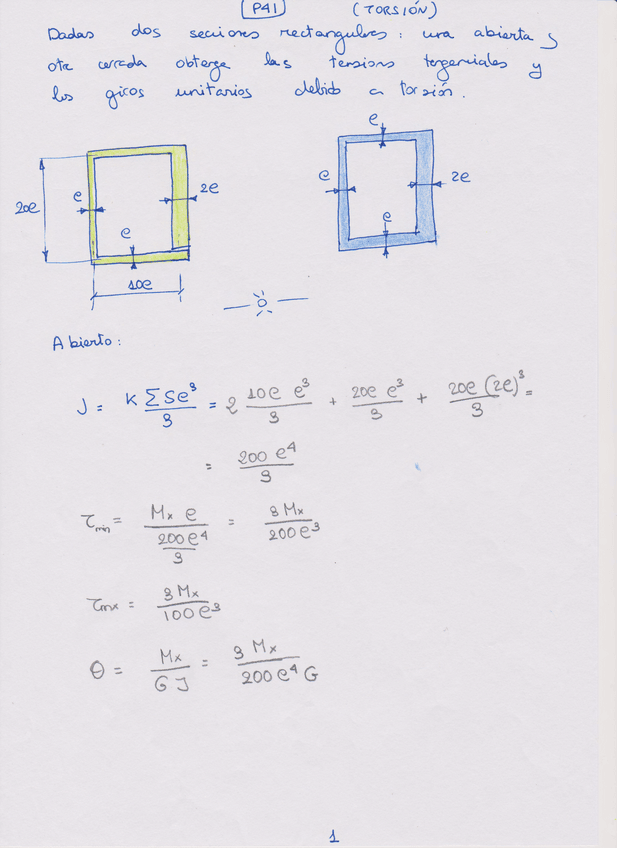 P41 (TORSIÓN)
Dadas dos secciones rectangulares: una abierta y
otra cerrada obtenga las tensiones tangenciales y
los giros unitarios debido a torsión.
20e e 2e e 10e
e e 2e e
Abierto:
J = K ΣSe³/3 = 2 10e e³/3 + 20e e³/3 + 20e (2e)³/3 =
= 200 e⁴/3
τmin = Mx e/(200e⁴/3) = 3 Mx/200e³
τmx = 3 Mx/100 e³
θ = Mx/GJ = 3 Mx/200 e⁴ G
1